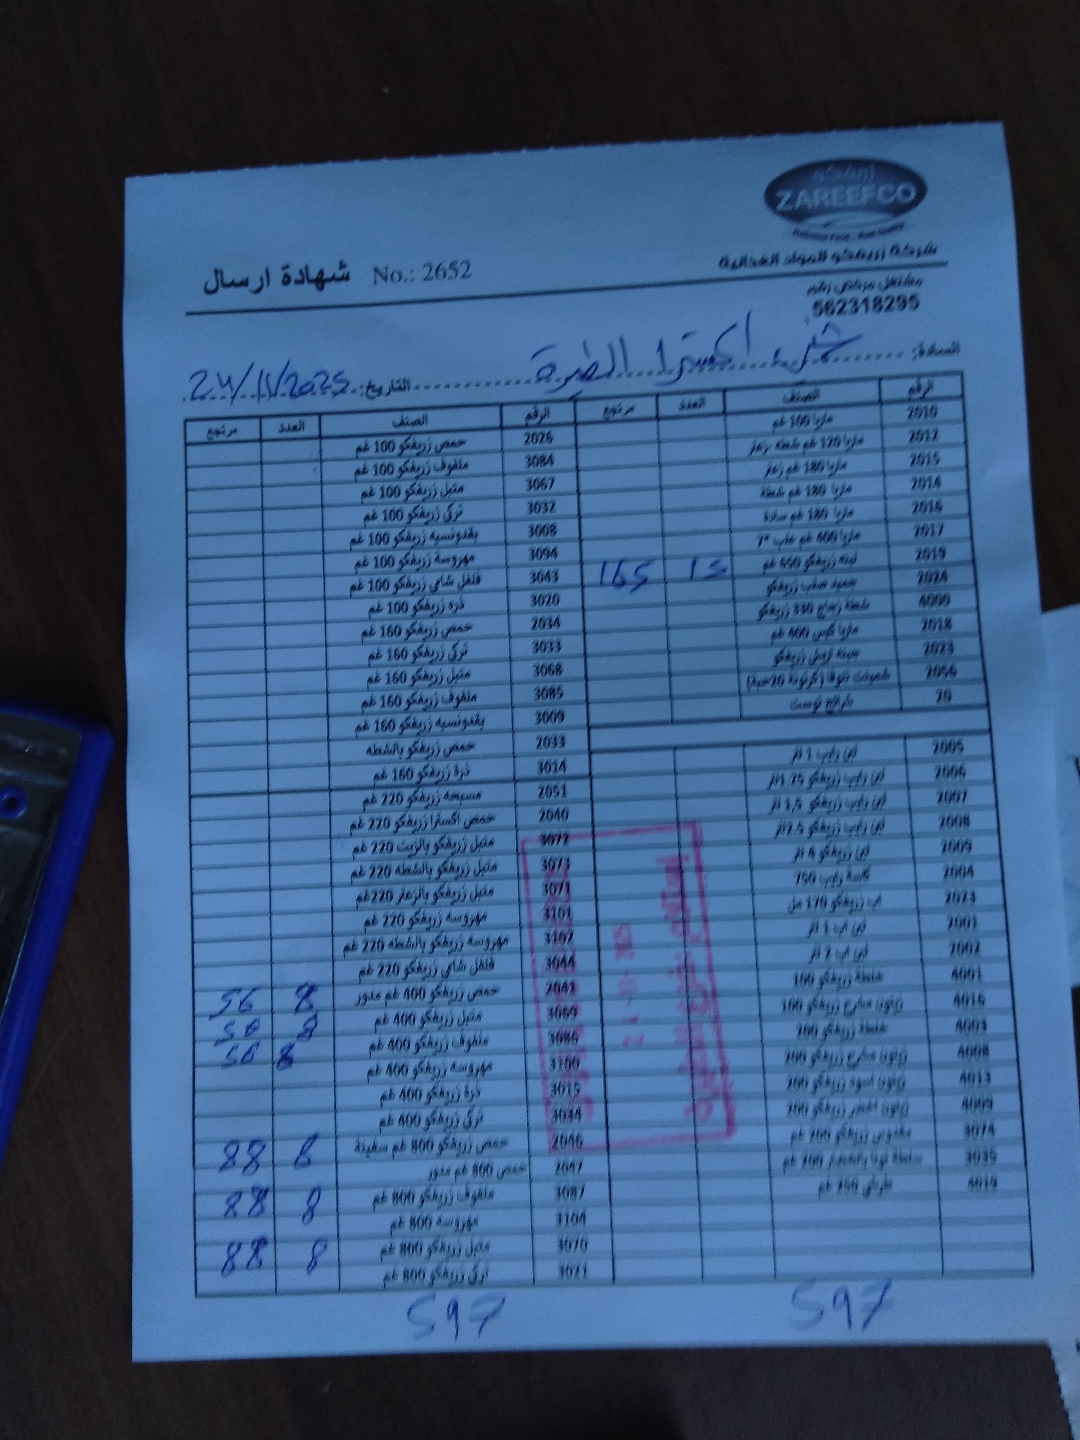 زريفكو
ZAREEFCO
شركة زريفكو للمواد الغذائية
شهادة ارسال No.: 2652
مشتغل مرخص رقم
562318295
السادة: اكسترا الطيرة
التاريخ: 24/11/2025
الرقم الصنف العدد مرتجع
2010 مازيا 100 غم
2012
2015
2014
2016
2017
2019 لبنة زريفكو 650 غم 15 165
2024
4000 سلطة زجاج 330 زريفكو
2018
2023 جبنة زريفكو
2056
20
2005 لبن رايب 1 لتر
2006 لبن رايب زريفكو 1.25 لتر
2007 لبن رايب زريفكو 1,5 لتر
2008 لبن رايب زريفكو 2.5 لتر
2009 لبن زريفكو 4 لتر
2004 كاسة رايب 750
2023 اب زريفكو 170 مل
2001 لبن اب 1 لتر
2002 لبن اب 2 لتر
4001 سلطة زريفكو 100
4016 زيتون مشرح زريفكو 100
4003 سلطة زريفكو 200
4008 زيتون مشرح زريفكو 200
4013 زيتون اسود زريفكو 200
4009 زيتون اخضر زريفكو 200
3074 مغدوس زريفكو 200 غم
3035 سلطة تونا بالخضار 200 غم
4019
الرقم الصنف العدد مرتجع
2026 حمص زريفكو 100 غم
3084 ملفوف زريفكو 100 غم
3067 متبل زريفكو 100 غم
3032 تركي زريفكو 100 غم
3008 بقدونسيه زريفكو 100 غم
3094 مهروسة زريفكو 100 غم
3043 فلفل شامي زريفكو 100 غم
3020 ذره زريفكو 100 غم
2034 حمص زريفكو 160 غم
3033 تركي زريفكو 160 غم
3068 متبل زريفكو 160 غم
3085 ملفوف زريفكو 160 غم
3009 بقدونسيه زريفكو 160 غم
2033 حمص زريفكو بالشطه
3014 ذرة زريفكو 160 غم
2051 مسبحه زريفكو 220 غم
2040 حمص اكسترا زريفكو 220 غم
3072 متبل زريفكو بالزيت 220 غم
3073 متبل زريفكو بالشطه 220 غم
3071 متبل زريفكو بالزعتر 220 غم
3101 مهروسه زريفكو 220 غم
3102 مهروسه زريفكو بالشطه 220 غم
3044 فلفل شامي زريفكو 220 غم
2042 حمص زريفكو 400 غم مدور 8 56
3069 متبل زريفكو 400 غم 8 56
3086 ملفوف زريفكو 400 غم 8 56
3100 مهروسه زريفكو 400 غم
3015 ذرة زريفكو 400 غم
3034 تركي زريفكو 400 غم
2046 حمص زريفكو 800 غم سفينة 8 88
2047 حمص 800 غم مدور
3087 ملفوف زريفكو 800 غم 8 88
3104 مهروسه 800 غم
3070 متبل زريفكو 800 غم 8 88
3021 تركي زريفكو 800 غم
597
597